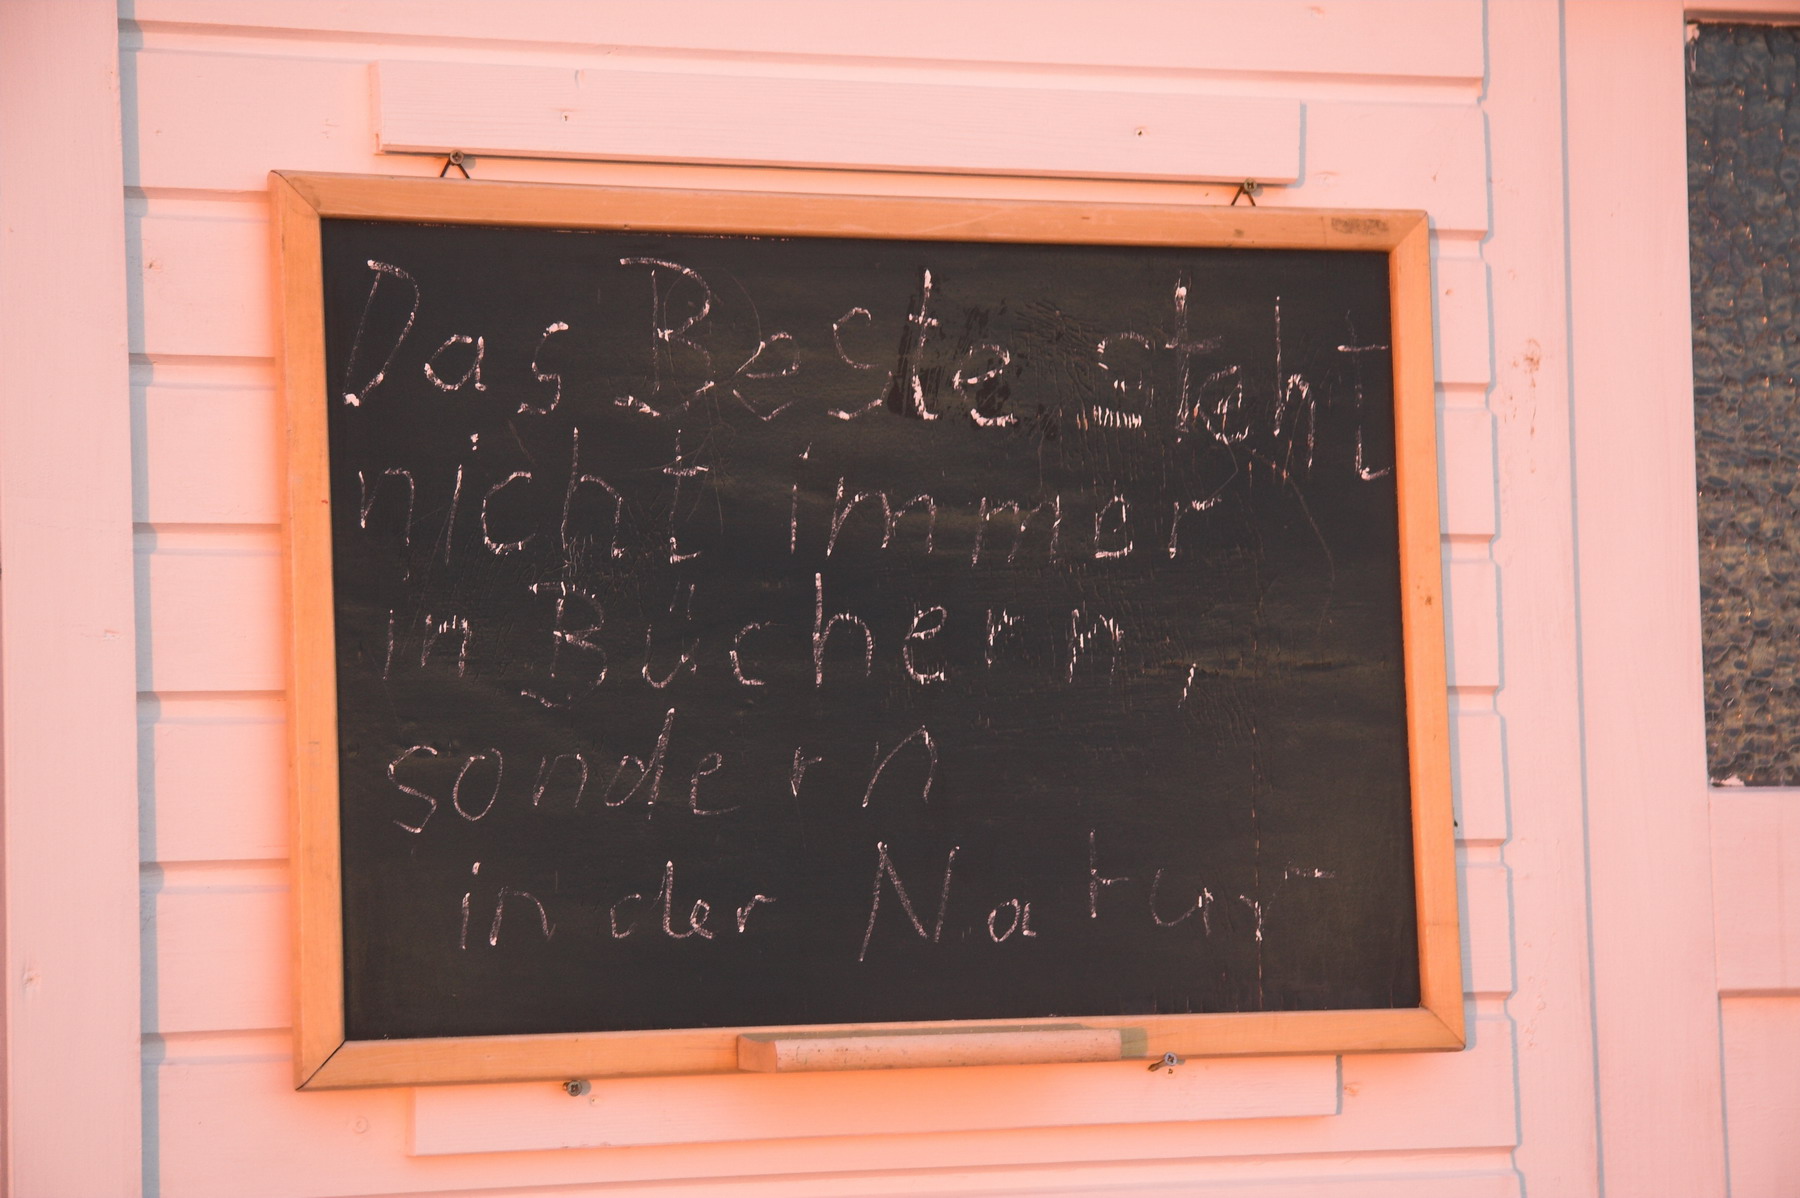 Das Beste steht
nicht immer
in Büchern,
sondern
in der Natur